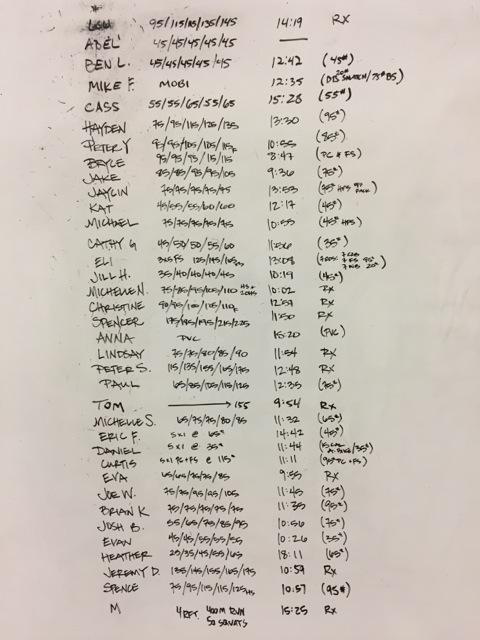 95/115/115/135/145 14:19 RX
ADEL 45/45/45/45/45 —
BEN L. 45/45/45/45/45 12:42 (45#)
MIKE F. MOBI 12:35
CASS 55/55/65/55/65 15:28 (55#)
HAYDEN 75/95/115/125/135 13:30 (95#)
PETER Y 95/95/105/105/115F 10:55 (85#)
BRYCE 95/95/95/115/115 8:47 (PC & FS)
JAKE 85/85/95/95/105 9:36 (75#)
JAYLIN 75/75/75/75/75 13:53
KAT 45/55/55/60/60 12:17 (45#)
MICHAEL 75/75/75/75/75 10:55 (45# HPS)
CATHY G 45/50/50/55/60 (35#)
ELI 3X5 FS 125/145/165 13:08
JILL H. 35/40/40/40/45 10:19 (45#)
MICHELLE N. 75/85/95/105/110 10:02 RX
CHRISTINE 90/95/100/105/110F 12:59 RX
SPENCER 175/185/195/215/225 11:50 RX
ANNA PVC 15:20 (PVC)
LINDSAY 75/75/80/85/90 11:54 RX
PETER S. 115/135/155/165/175 12:48 RX
PAUL 65/85/105/115/125 12:35 (75#)
TOM → 155 9:54 RX
MICHELLE S. 65/75/75/80/85 11:32 (65#)
ERIC F. 5X1 @ 65# 14:42 (45#)
DANIEL 5X1 @ 35# 11:44
CURTIS 5X1 PC+FS @ 115# 11:11 (95# PC+FS)
EVA 65/65/75/75/85 9:55 RX
JOE W. 75/75/95/95/105 11:45 (75#)
BRIAN K 75/75/75/75/75 11:35 (95#)
JOSH B. 55/65/75/85/95 10:56 (75#)
EVAN 45/45/55/55/55 10:26 (35#)
HEATHER 25/35/45/55/65 18:11 (65#)
JEREMY D. 135/145/155/165/175 10:59 RX
SPENCE 75/95/115/115/125 10:57 (95#)
M 4 RFT 400M RUN 15:25 RX
50 SQUATS